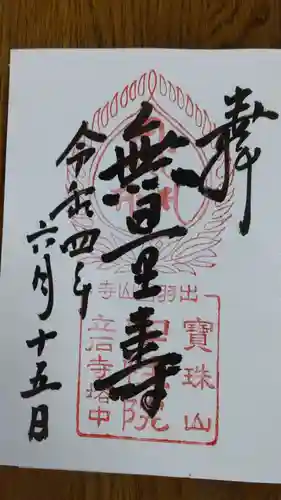 奉
無量寿
令和四年
六月十五日
出羽山寺
寶珠山
院
立石寺塔中